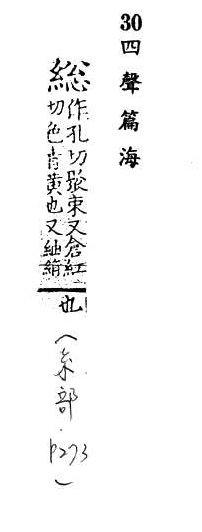 30四聲篇海
総
作孔切聚束又倉紅
切色青黄也又紬絹
也
(糸部.p273)